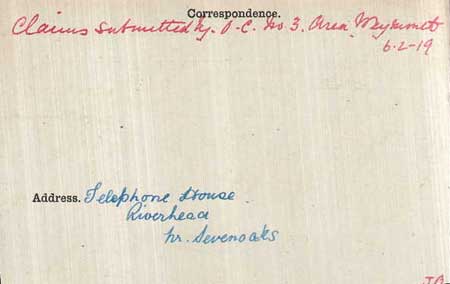 Correspondence.
Claims submitted by. O.C. No 3. Area Weymouth
6-2-19
Address. Telephone House
Riverhead
Nr. Sevenoaks